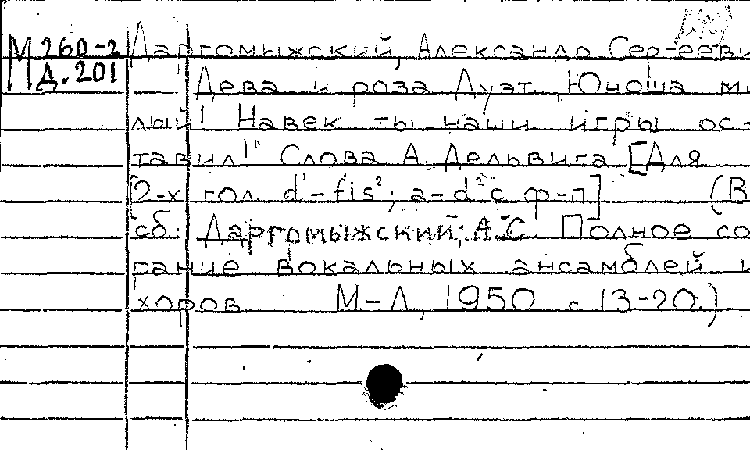 М 260-2
Д. 201
Даргомыжский, Александр Сергееви
Дева и роза Дуэт „Юноша ми
лый! Навек ты наши игры ос-
тавил!" Слова А Дельвига [Для
2-х гол. d'-fis²; a-d² с ф-п] (В
сб.: Даргомыжский, А.С. Полное со
рание вокальных ансамблей и
хоров М-Л, 1950 с 13-20.)